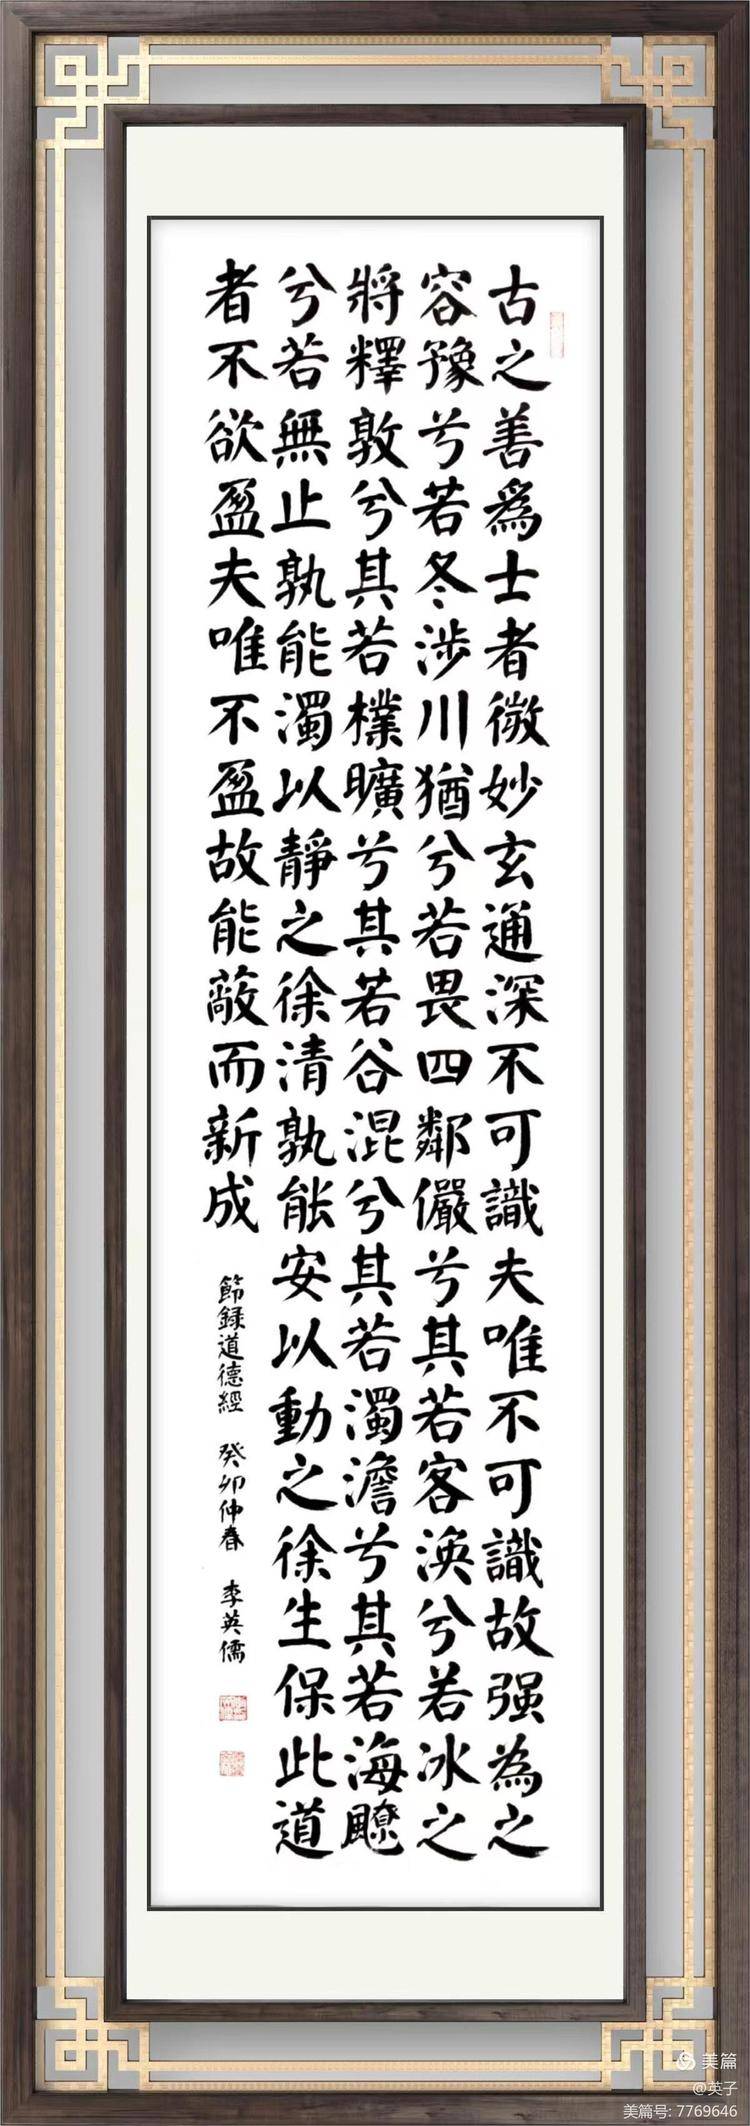 古之善為士者微妙玄通深不可識夫唯不可識故强為之
容豫兮若冬涉川猶兮若畏四鄰儼兮其若客渙兮若冰之
將釋敦兮其若樸曠兮其若谷混兮其若濁澹兮其若海飂
兮若無止孰能濁以靜之徐清孰能安以動之徐生保此道
者不欲盈夫唯不盈故能蔽而新成
節録道德經 癸卯仲春 李英儒
美篇
@英子
美篇号: 7769646